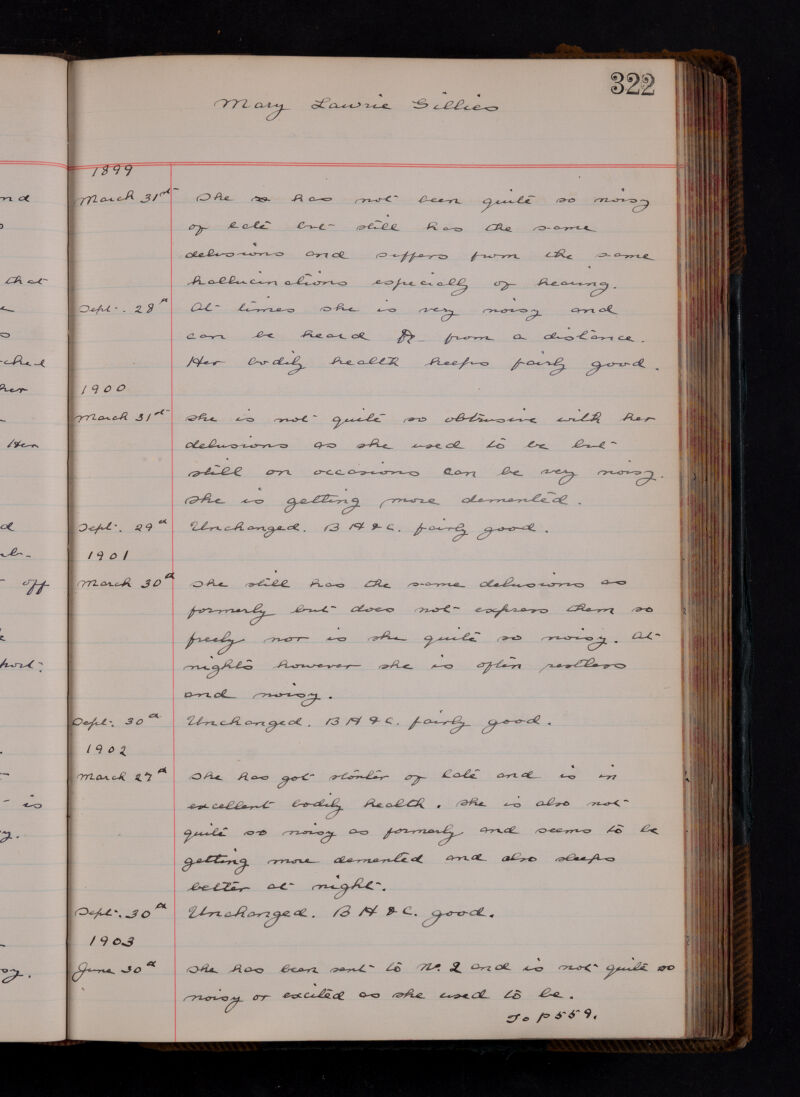 322
Mary Lawrie Gillies
1899
March 31st She has not been quite so noisy
of late but still has the same
delusions and suffers from the same
hallucinations especially of hearing.
Sept. 28th At times she is very noisy and
can be heard from a distance.
Her bodily health keeps fairly good.
1900
March 31st She is not quite so obtrusive with her
delusions as she used to be but
still on occasions can be very noisy.
She is getting more demented.
Sept. 29th Unchanged. B H & C. fairly good.
1901
March 30th She still has the same delusions as
formerly but does not express them so
freely nor is she quite so noisy. At
nights however she is often restless
and noisy.
Sept. 30th Unchanged. B H & C. fairly good.
1902
March 27th She has got stouter of late and is in
excellent bodily health. She is also not
quite so noisy as formerly and seems to be
getting more demented and also sleeps
better at night.
Sept. 30th Unchanged. B H & C. good.
1903
June 30th She has been sent to No. 2 and is not quite so
noisy or excited as she used to be.
To p 559.